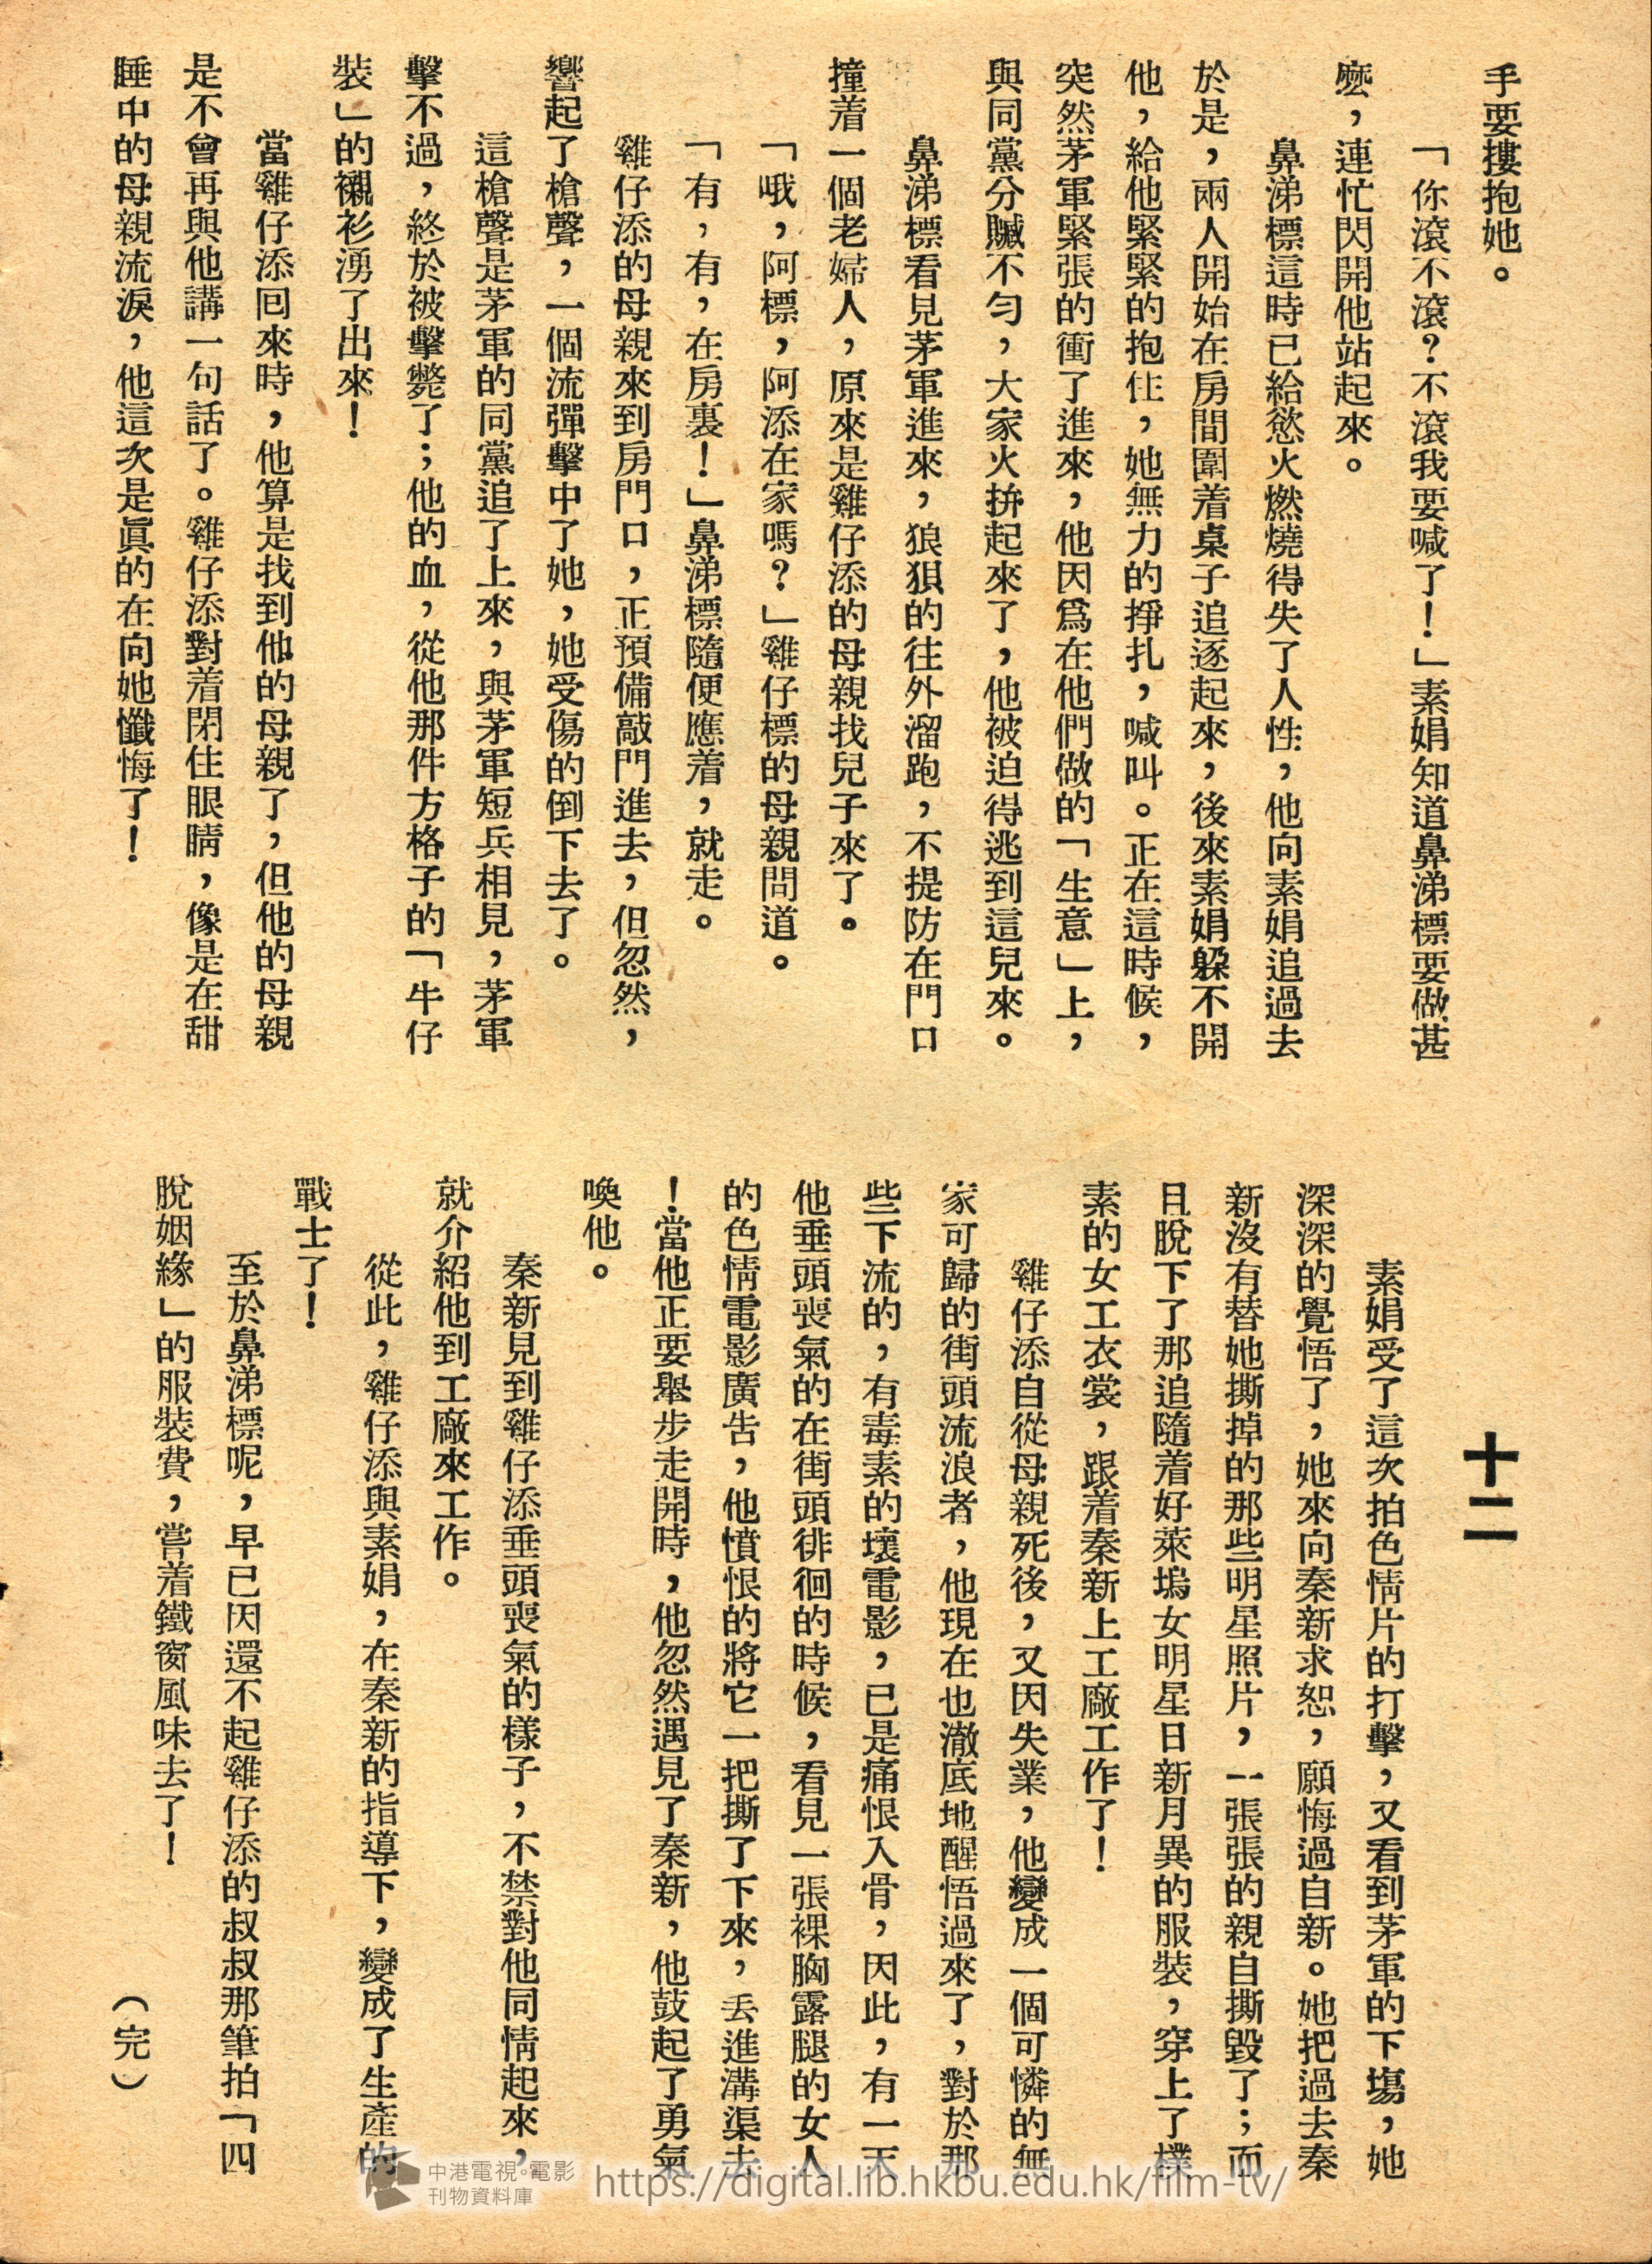 手要摟抱她。
「你滾不滾？不滾我要喊了！」素娟知道鼻涕標要做甚
麽，連忙閃開他站起來。
鼻涕標這時已給慾火燃燒得失了人性，他向素娟追過去
於是，兩人開始在房間圍着桌子追逐起來，後來素娟躱不開
他，給他緊緊的抱住，她無力的掙扎，喊叫。正在這時候，
突然茅軍緊張的衝了進來，他因爲在他們做的「生意」上，
與同黨分贓不匀，大家火拚起來了，他被迫得逃到這兒來。
鼻涕標看見茅軍進來，狼狽的往外溜跑，不提防在門口
撞着一個老婦人，原來是雞仔添的母親找兒子來了。
「哦，阿標，阿添在家嗎？」雞仔標的母親問道。
「有，有，在房裏！」鼻涕標隨便應着，就走。
雞仔添的母親來到房門口，正預備敲門進去，但忽然，
響起了槍聲，一個流彈擊中了她，她受傷的倒下去了。
這槍聲是茅軍的同黨追了上來，與茅軍短兵相見，茅軍
擊不過，終於被擊斃了；他的血，從他那件方格子的「牛仔
裝」的襯衫湧了出來！
當雞仔添回來時，他算是找到他的母親了，但他的母親
是不會再與他講一句話了。雞仔添對着閉住眼睛，像是在甜
睡中的母親流淚，他這次是眞的在向她懺悔了！
十二
素娟受了這次拍色情片的打擊，又看到茅軍的下塲，她
深深的覺悟了，她來向秦新求恕，願悔過自新。她把過去秦
新沒有替她撕掉的那些明星照片，一張張的親自撕毀了；而
且脫下了那追隨着好萊塢女明星日新月異的服裝，穿上了樸
素的女工衣裳，跟着秦新上工廠工作了！
雞仔添自從母親死後，又因失業，他變成一個可憐的無
家可歸的街頭流浪者，他現在也澈底地醒悟過來了，對於那
些下流的，有毒素的壞電影，已是痛恨入骨，因此，有一天
他垂頭喪氣的在街頭徘徊的時候，看見一張裸胸露腿的女人
的色情電影廣告，他憤恨的將它一把撕了下來，丢進溝渠去
！當他正要舉步走開時，他忽然遇見了秦新，他鼓起了勇氣
喚他。
秦新見到雞仔添垂頭喪氣的樣子，不禁對他同情起來，
就介紹他到工廠來工作。
從此，雞仔添與素娟，在秦新的指導下，變成了生產的
戰士了！
至於鼻涕標呢，早已因還不起雞仔添的叔叔那筆拍「四
脫姻緣」的服裝費，嘗着鐵窗風味去了！
（完）
中港電視。電影
刊物資料庫
https://digital.lib.hkbu.edu.hk/film-tv/